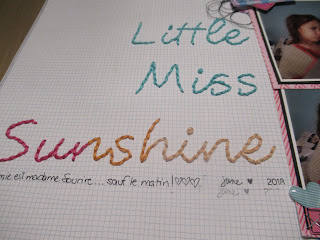 Little
Miss
Sunshine
mie est madame Sourire.... sauf le matin! ♡♡♡ june ♥ 2019
june ♥